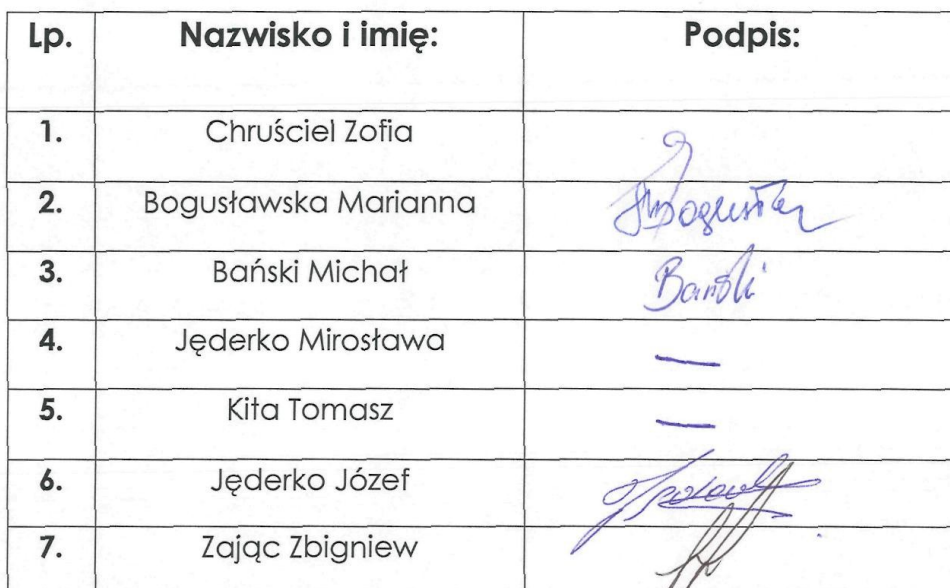 Lp. Nazwisko i imię: Podpis:
1. Chruściel Zofia
2. Bogusławska Marianna
3. Bański Michał Bański
4. Jęderko Mirosława —
5. Kita Tomasz —
6. Jęderko Józef
7. Zając Zbigniew